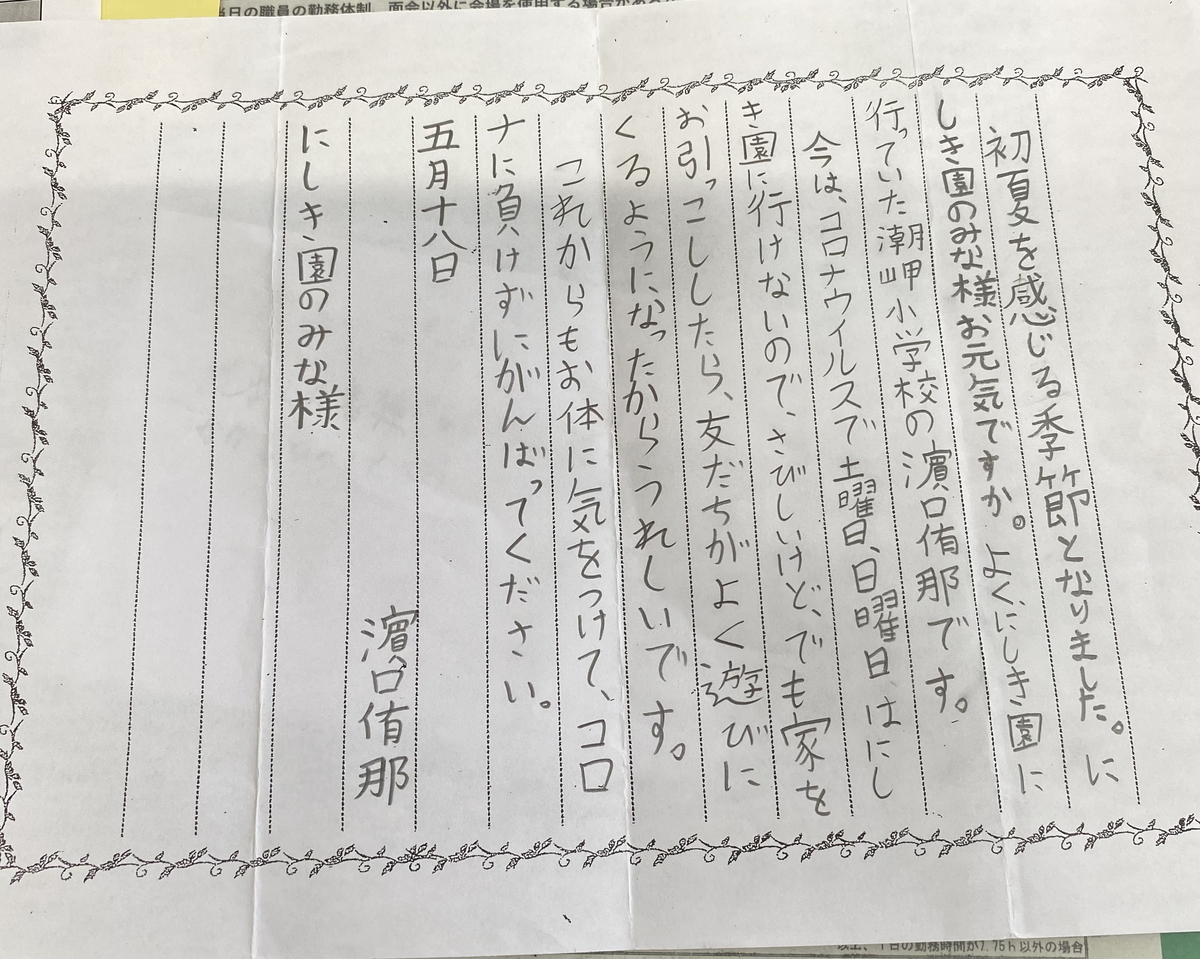 当日の職員の勤務体制、面会以外に会場を使用する場合がある
初夏を感じる季節となりました。に
しき園のみな様お元気ですか。よくにしき園に
行っていた潮岬小学校の濱口侑那です。
今は、コロナウィルスで土曜日、日曜日、はにし
き園に行けないので、さびしいけど、でも家を
お引っこししたら、友だちがよく遊びに
くるようになったからうれしいです。
これからもお体に気をつけて、コロ
ナに負けずにがんばってください。
五月十八日
濱口侑那
にしき園のみな様
以上、1日の勤務時間が7.75h以外の場合